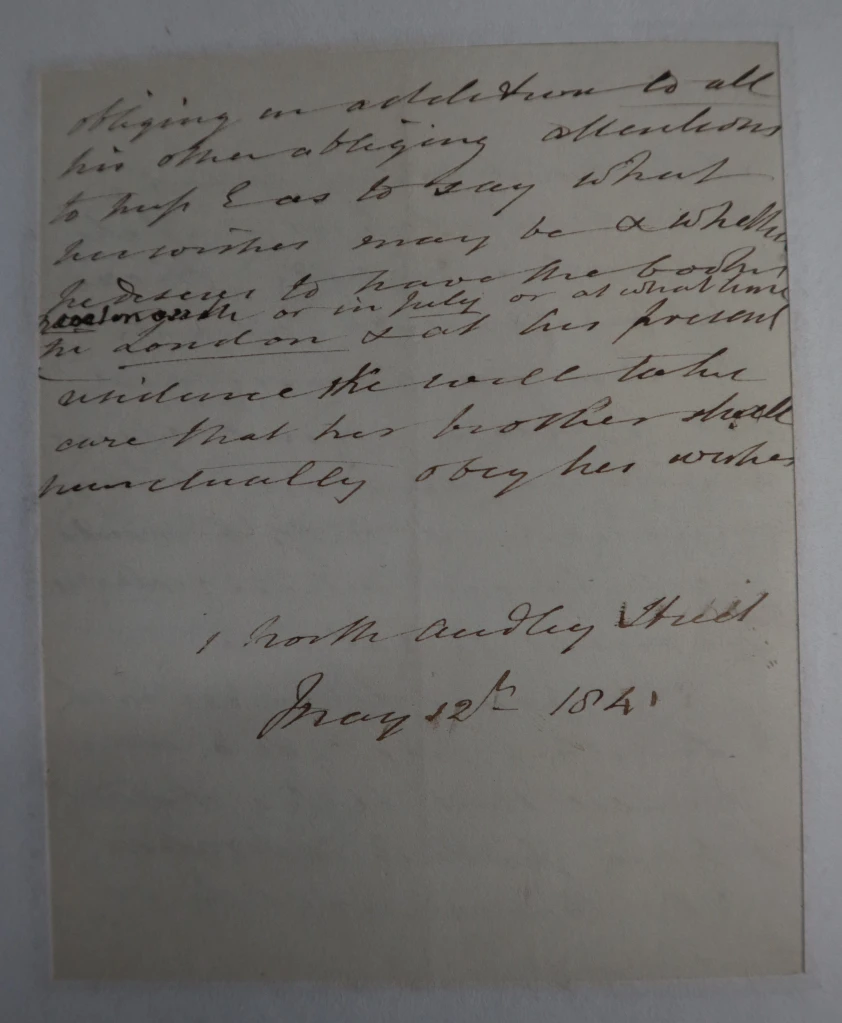 obliging in addition to all
his other obliging attentions
to Miss E as to say what
his wishes may be & whether
he desires to have the books
or in July or at what time
in London & at his present
residence She will take
care that her brother shall
punctually obey his wishes
1 North Audley Street
May 12th 1841